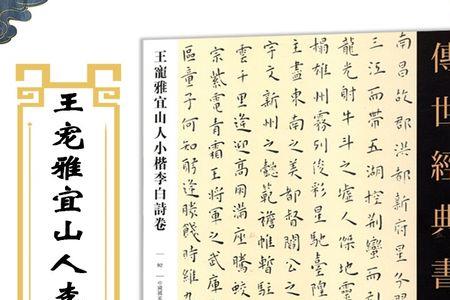 傳世經典書
南昌故郡洪都新府星分
三江而帶五湖控荊蠻而引
龍光射牛斗之虛人傑地靈
榻雄州霧列俊彩星馳臺隍
主盡東南之美都督閻公之
宇文新州之懿範襜帷暫駐
雲千里逢迎高朋滿座騰蛟
宗紫電青霜王將軍之武庫
區童子何知躬逢勝餞時維九
王寵雅宜山人小楷李白詩卷
王宠雅宜山人李